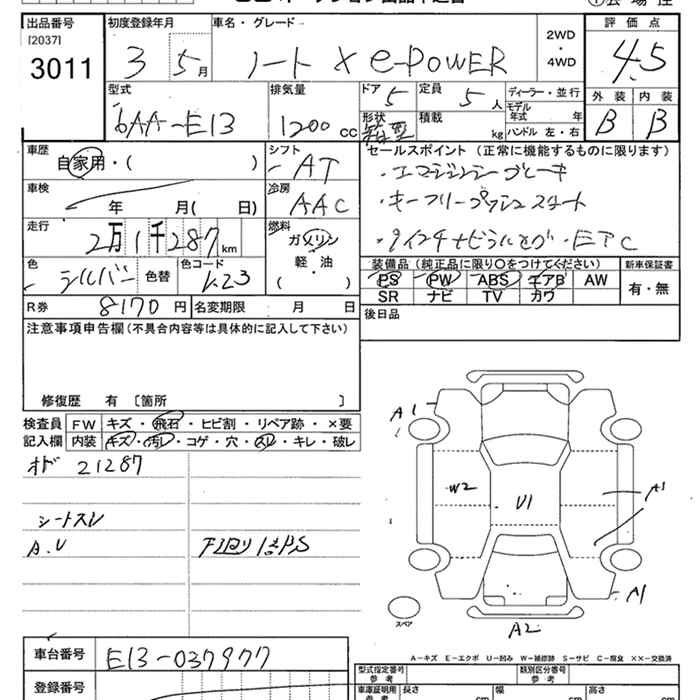 出品番号 初度登録年月 車名・グレード 評価点
[2037] 3011 3 5月 ノート X e-POWER 2WD・4WD 4.5
型式 排気量 ドア 5 定員 5人 ディーラー・並行 外装 内装
6AA-E13 1200cc 形状 箱型 積載 kg モデル年式 年 ハンドル 左・右 B B
車歴 自家用・( ) シフト AT セールスポイント (正常に機能するものに限ります)
車検 年 月( 日) 冷房 AAC ・エマージェンシーブレーキ
・キーフリープッシュスタート
走行 2万1千287km 燃料 ガソリン 軽・油 ( ) ・9インチナビ ・ETC
色 シルバー 色替 色コード K23 装備品(純正品に限り○をつけてください) 新車保証書
PS PW ABS エアB AW 有・無
SR ナビ TV カワ
R券 8170円 名変期限 月 日 後日品
注意事項申告欄(不具合内容等は具体的に記入して下さい)
修復歴 有 [箇所 ]
検査員 FW キズ・飛石・ヒビ割・リペア跡・×要
記入欄 内装 キズ・汚レ・コゲ・穴・スレ・キレ・破レ
オド 21287
シートスレ
A.U 下回りはPS
A1
W2 U1 A1
A1
スペア
A2
A-キズ E-エクボ U-凹み W-補修跡 S-サビ C-腐食 ××-交換済
車台番号 E13-037977 型式指定番号 参考 類別区分番号 参考
登録番号 車庫証明用 参考 長さ cm 幅 cm 高さ cm